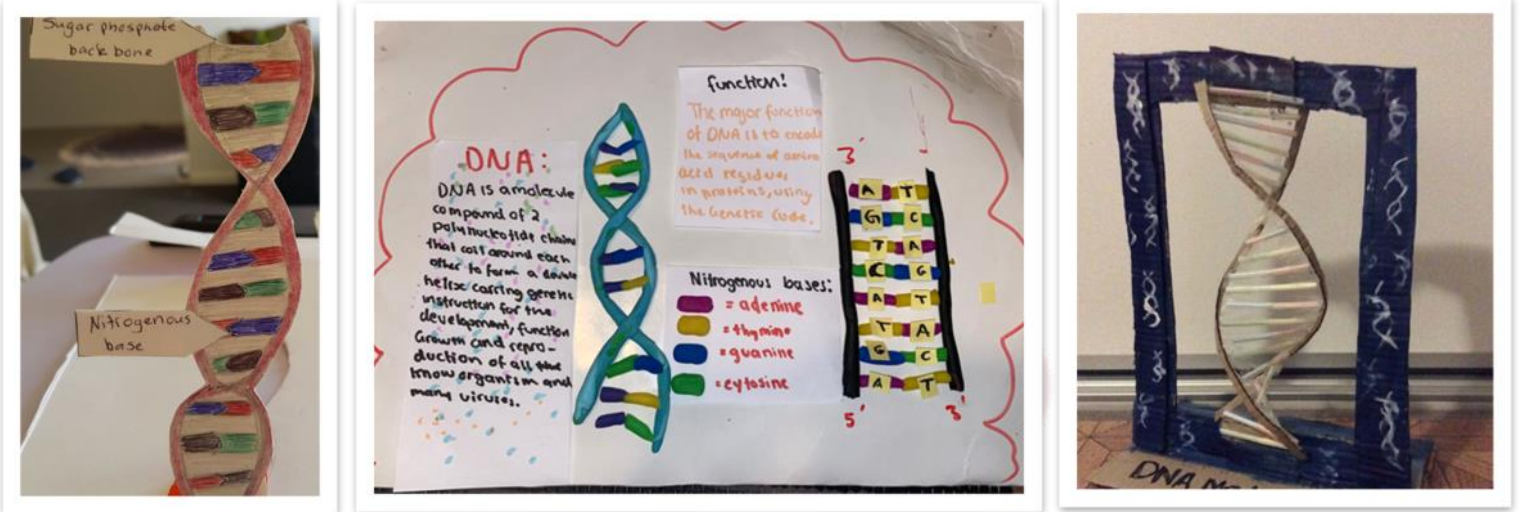 Sugar phosphate
back bone
Nitrogenous
base
DNA:
DNA is a molecule
compound of 2
polynucleotide chains
that coil around each
other to form a double
helix carring genetic
instruction for the
development, function
Growth and repro-
duction of all the
know organism and
many viruses.
function!
The major function
of DNA is to encode
the sequence of amino
acid residues
in proteins, using
the Genetic Code.
Nitrogenous bases:
= adenine
= thymine
= guanine
= cytosine
3'
A T
G C
T A
C G
A T
T A
G C
A T
5' 3'
DNA